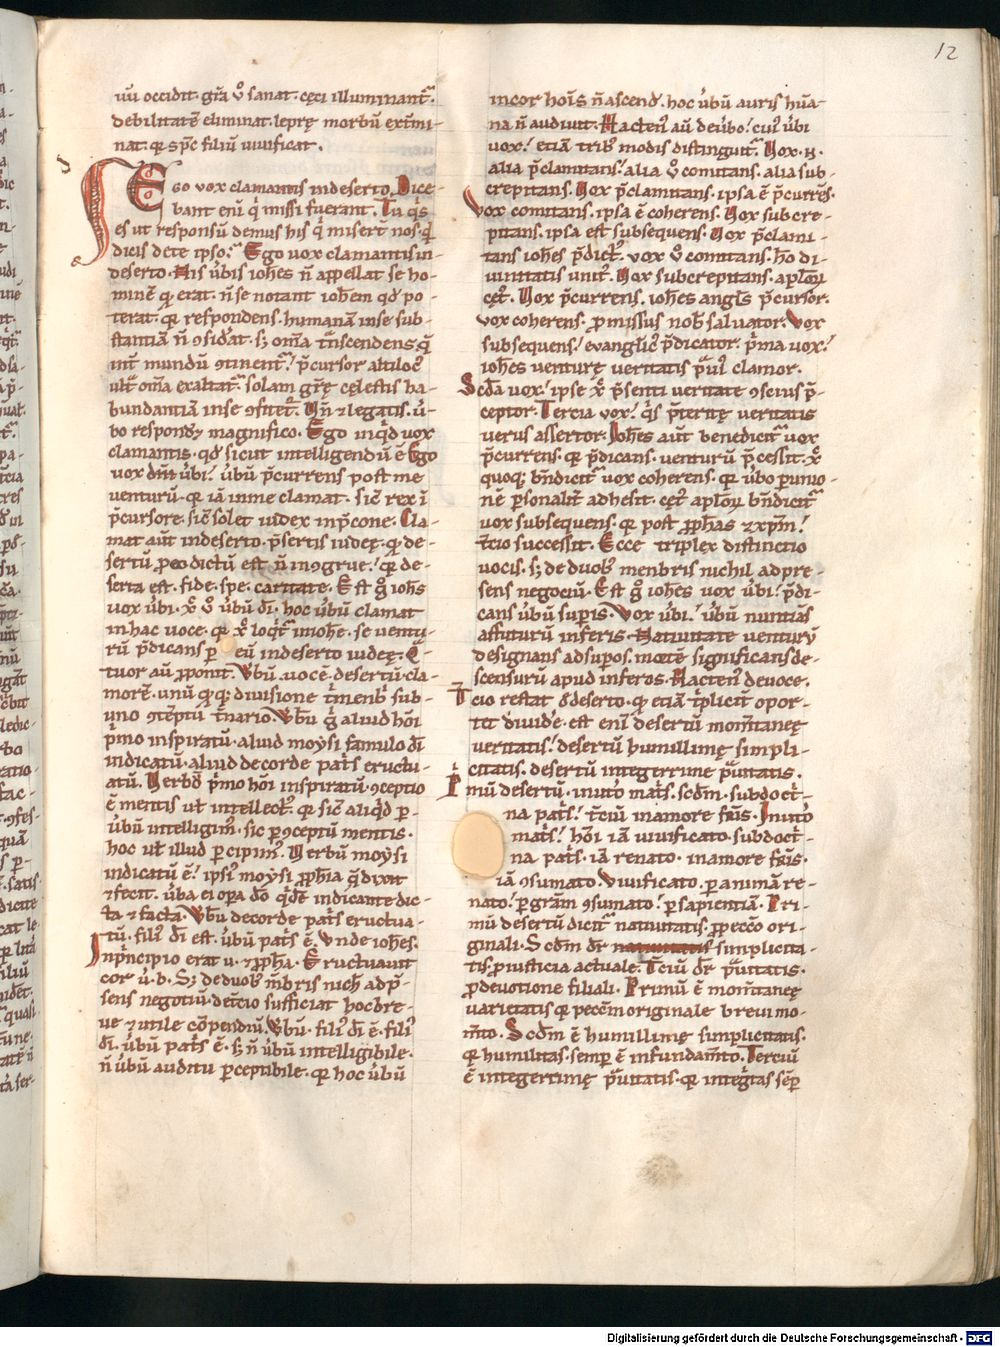 12
uu̅ occidit. gr̅a v̊ sanat. cęci illuminant᷑.
debilitate̅ eliminat. leprę morbu̅ ext̅mi-
nat. q̅ spc̅ filiu̅ vivificat.
Ego vox clamantis in deserto. Dice-
bant eni̅ q̇ missi fuerant. Tu q̇s
es ut responsu̅ demus his q̇ misert̅ nos. q̇d
dicis de te ipso? Ego vox clamantis in
deserto. His v̅bis ioh̅es n̅ appellat se ho-
mine̅ q̅ erat. n̅ se notant ioh̅em qd̅ po-
terat. q̅ respondens. humana̅ in se sub-
stantia̅ n̅ ꝯsid̅at. sꝫ om̅ia t̅nscendens. q̅
int̅ mundu̅ ꝯtinent᷑. p̅cursor altiloc᷒
ult̅ om̅ia exaltat᷑. solam gr̅ę cęlestis ha-
bundantia̅ in se ꝯfitet᷑. Un̅ ⁊ legatis. v̅-
bo respond̅ magnifico. Ego inq̇d vox
clamantis. qd̅ sicut intelligendu̅ e̅ Ego
vox dn̅i v̅bi. v̅bu̅ p̅currens post me
venturu̅. q̅ ia̅ in me clamat. sic̅ rex i̅
p̅cursore. sic̅ solet iudex in p̅cone. Cla-
mat aut̅ in deserto. p̅sertis iudeę. q̅ de-
sertu̅ ꝓeo dictu̅ est n̅ inꝯgrue. q̅ de-
serta est. fide. spe. caritate. Est g̊ ioh̅s
vox v̅bi. xp̅c v̊ v̅bu̅ di̅. hoc v̅bu̅ clamat
in hac voce. q̅ xp̅c loq̇t᷑ in ioh̅e. se ventu-
ru̅ p̅dicans ꝑ eu̅ in deserto iudeę. Q̅-
tuor au̅ ꝓponit. V̅bu̅. voce̅. desertu̅ cla-
more̅. unu̅ q̅ꝫ divisione t̅menb̅ sub-
uno ꝯte̅ptu̅ t̅nario. V̅bu̅ g̊ aliud ho̅i
ṗmo inspiratu̅. aliud moysi famulo di̅
indicatu̅. aliud de corde pat̅s eructu-
atu̅. Verbu̅ ṗmo ho̅i inspiratu̅. ꝯceptio
e̅ mentis vl̅ intellect᷒. q̅ sic̅ aliq̇d ꝑ
v̅bu̅ intelligim᷒. sic ꝑ ꝯceptu̅ mentis.
hoc vl̅ illud ꝑcipim᷒. Verbu̅ moysi
indicatu̅ e̅. ipsi᷒ moysi ꝓph̅ia q̅ dixit
⁊ fecit. v̅ba ei op̅a d̅o q̇de̅ indicante dic-
ta ⁊ facta. V̅bu̅ de corde pat̅s eructua-
tu̅. fili᷒ di̅ est. v̅bu̅ pat̅s e̅. Unde ioh̅es.
In ṗncipio erat v. ⁊ ꝓph̅a. Eructauit
cor u. b. Sꝫ de duob᷒ m̅bris nich̅ ad p̅-
sens negotiu̅. de t̅cio sufficiat hoc bre-
ve ⁊ utile co̅pendiu̅. V̅bu̅. fili᷒ di̅ e̅. fili᷒
di̅. v̅bu̅ pat̅s e̅. sꝫ n̅ v̅bu̅ intelligibile.
n̅ v̅bu̅ auditu ꝑceptibile. q̅ hoc v̅bu̅
in cor hoi̅s n̅ ascend̅. hoc v̅bu̅ auris hu̅a-
na n̅ audiuit. Hacten᷒ au̅ de v̅bo. cui᷒ v̅bi
vox. etia̅ trib᷒ modis distinguit᷑. Vox. n.
alia p̅clamitans. alia v̊ comitans. alia sub-
crepitans. Vox p̅clamitans. ipsa e̅ p̅curre̅s.
Vox comitans. ipsa e̅ coherens. Vox subcre-
pitans. ipsa est subsequens. Vox p̅clami-
tans ioh̅es p̅dict᷒. vox v̊ comitans. ho̅ di-
vinitatis unit᷒. Vox subcrepitans. aplo̅ꝝ
cęt᷒. Vox p̅currens. ioh̅es angl̅s p̅cursor.
vox coherens. ꝓmissus nob̅ salvator. Vox
subsequens. evangelic᷒ p̅dicator. ṗma vox.
ioh̅es venturę veritatis p̅ui᷒ clamor.
Scd̅a vox. ipse xp̅c p̅senti veritate ꝯscius p̅-
ceptor. Tercia vox. q̇s p̅teritę veritatis
verus assertor. Ioh̅es aut̅ benedicit᷑ vox
p̅currens. q̅ p̅dicans. venturu̅ p̅cessit. xp̅c
quoqꝫ bn̅dicit᷑ vox coherens. q̅ v̅bo ꝑ unio-
ne̅ ꝑsonalit̅ adhesit. cęt᷒ aplo̅ꝝ bn̅dicit᷑
vox subsequens. q̅ post ꝓph̅as ⁊ xp̅m.
t̅cio successit. Ecce triplex distinctio
vocis. sꝫ de duob᷒ menbris nichil ad pre-
sens negociu̅. Est g̊ ioh̅es vox v̅bi. p̅di-
cans v̅bu̅ sup̅is. Vox v̅bi. v̅bu̅ nuntia̅s
affuturu̅ inferis. Nativitate venturu̅
designans ad supos. morte̅ significans de-
scensuru̅ apud inferos. Hacten᷒ de voce.
Tcio restat d̅ deserto. q̅ etia̅ ṫplicit̅ opor-
tet divid̅e. est eni̅ desertu̅ mom̅taneę
veritatis. desertu̅ humillimę simpli-
citatis. desertu̅ integerrimę p̅uitatis.
Ṗmu̅ desertu̅. in uto̅ mat̅s. scd̅m. sub docṫ-
na pat̅s. t̅ciu̅ in amore fr̅is. In uto̅
mat̅s. ho̅i ia̅ vivificato. sub docṫ-
na pat̅s. ia̅ renato. in amore fr̅is.
ia̅ ꝯsumato. Vivificato. ꝑ anima̅ re-
nato. ꝑ gram̅ ꝯsumato. ꝑ sapientia̅. Pri-
mu̅ desertu̅ dicit᷑ nativitatis. ꝓ pecc̅o ori-
ginali. Scd̅m dr̅ simplicita-
tis. ꝓ iusticia actuale. T̅ciu̅ dr̅ p̅uitatis.
ꝓ devotione filiali. Primu̅ e̅ mom̅taneę
varietatis q̅ pecc̅m originale brevi mo-
m̅to. Scd̅m e̅ humillimę simplicitatis.
q̅ humilitas. semp̅ e̅ in fundam̅to. Terciu̅
e̅ integerrimę p̅uitatis. q̅ inteġtas semp̅
Digitalisierung gefördert durch die Deutsche Forschungsgemeinschaft - DFG